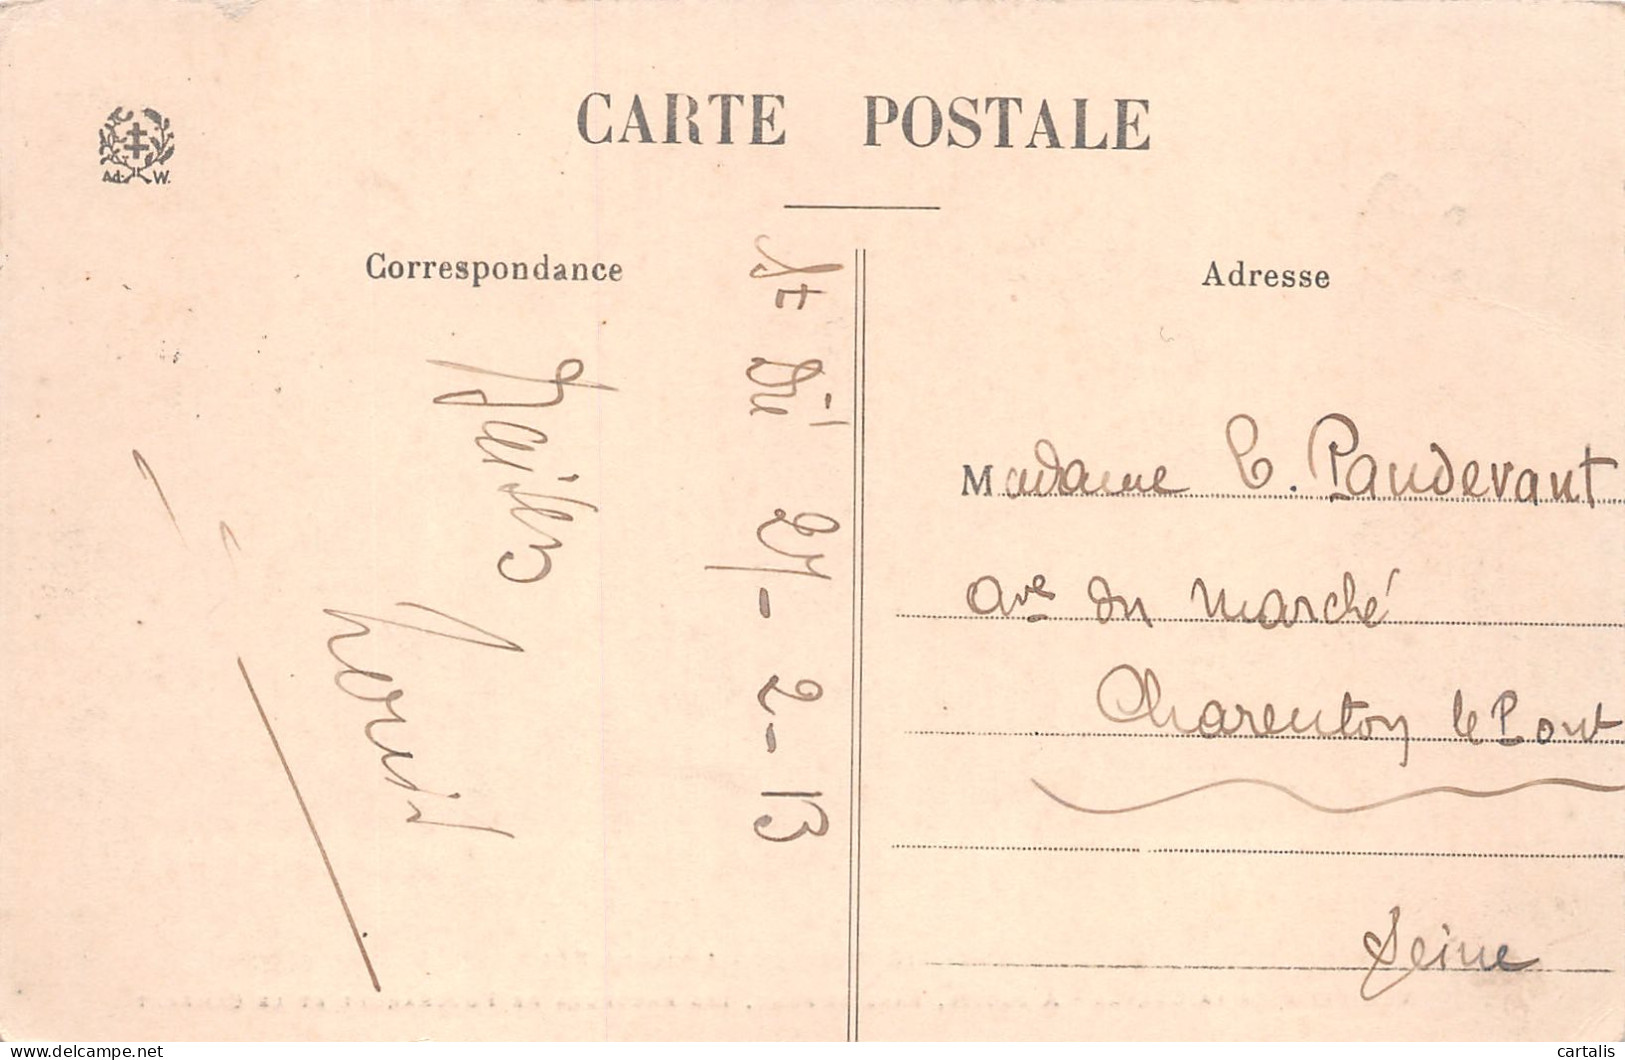 CARTE POSTALE
Ad. W.
Correspondance
Adresse
St Dié 27-2-13
Baisers
Louis
Madame E. Paudevant
ave du marché
Charenton le Pont
Seine
cartalis